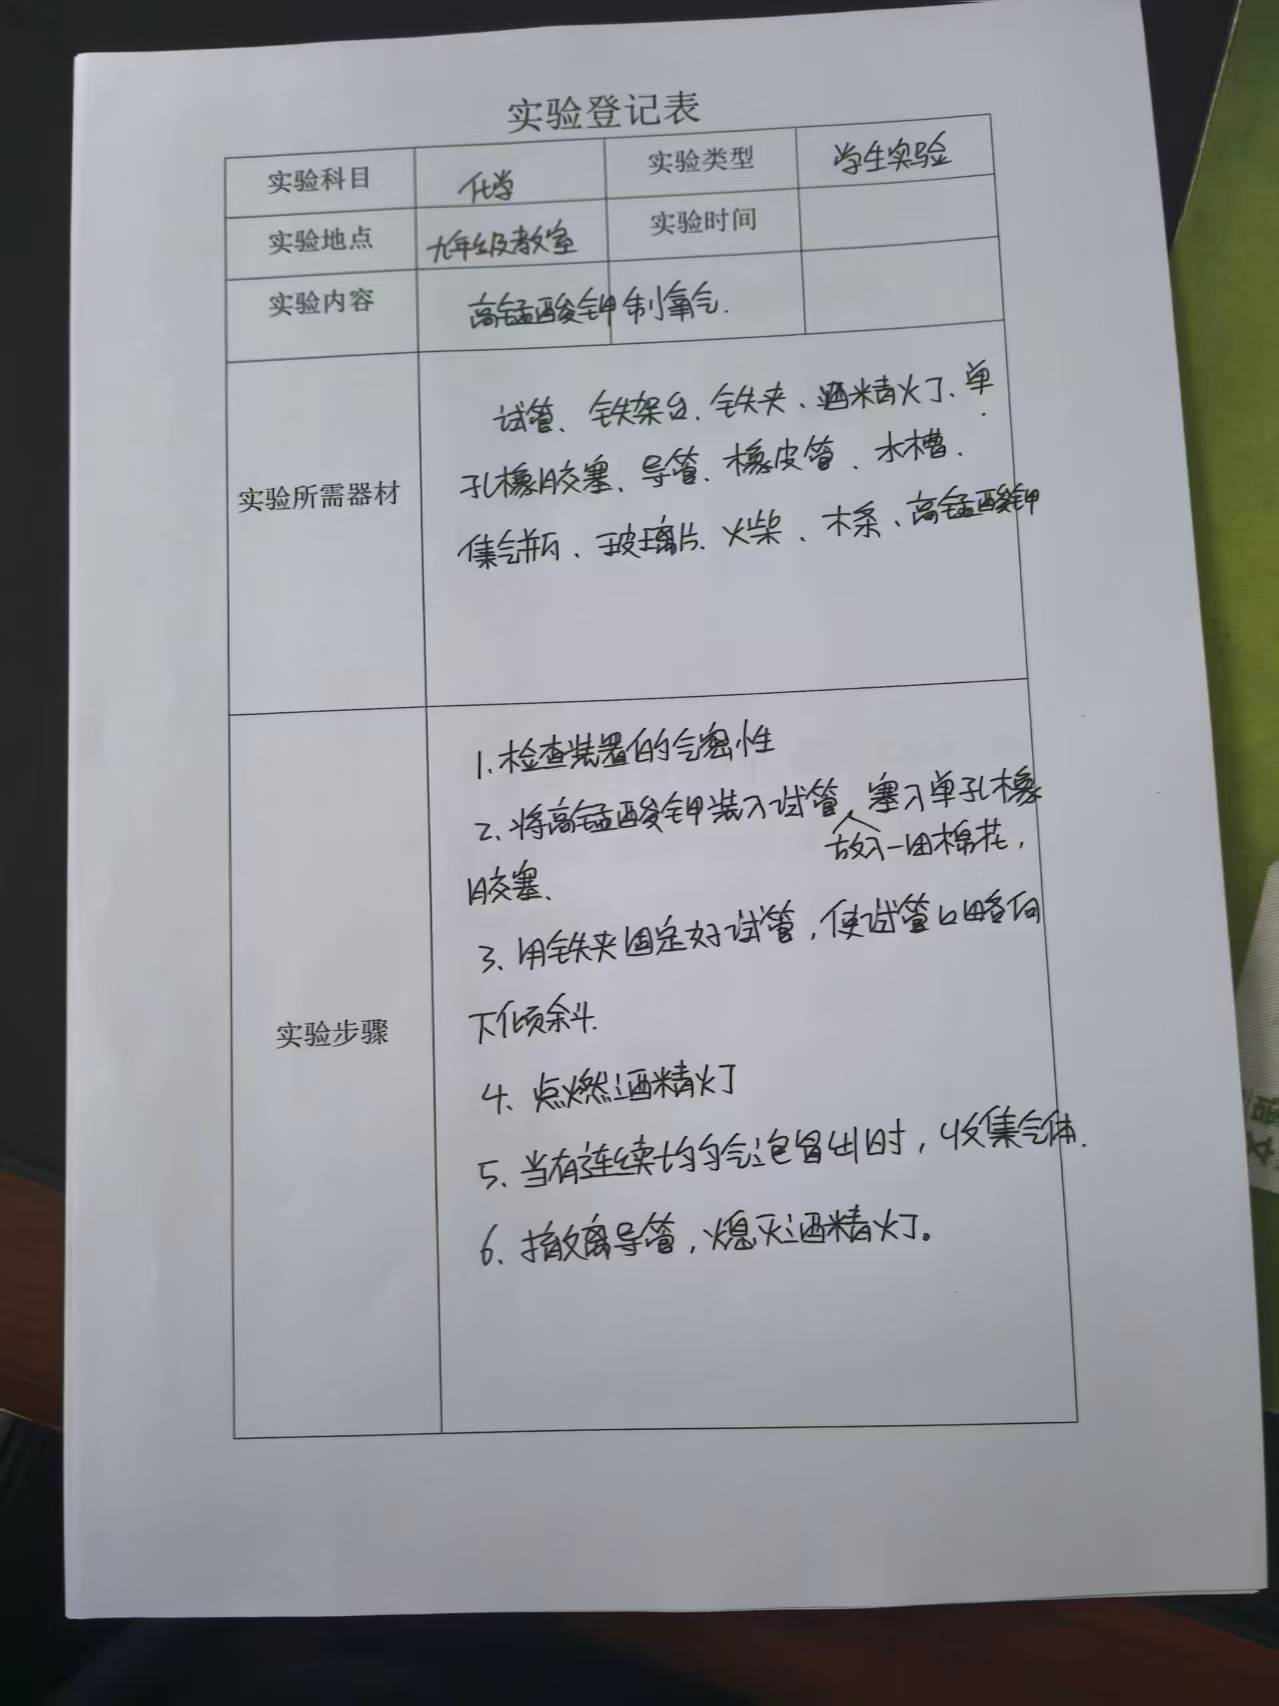 实验登记表
实验科目 化学 实验类型 学生实验
实验地点 九年级教室 实验时间
实验内容 高锰酸钾制氧气.
实验所需器材
试管、铁架台、铁夹、酒精灯、单
孔橡胶塞、导管、橡皮管、水槽、
集气瓶、玻璃片、火柴、木条、高锰酸钾
实验步骤
1.检查装置的气密性
2、将高锰酸钾装入试管,塞入单孔橡
放入一团棉花,
胶塞.
3、用铁夹固定好试管,使试管口略向
下倾斜.
4、点燃酒精灯
5、当有连续均匀气泡冒出时,收集气体.
6、撤离导管,熄灭酒精灯。